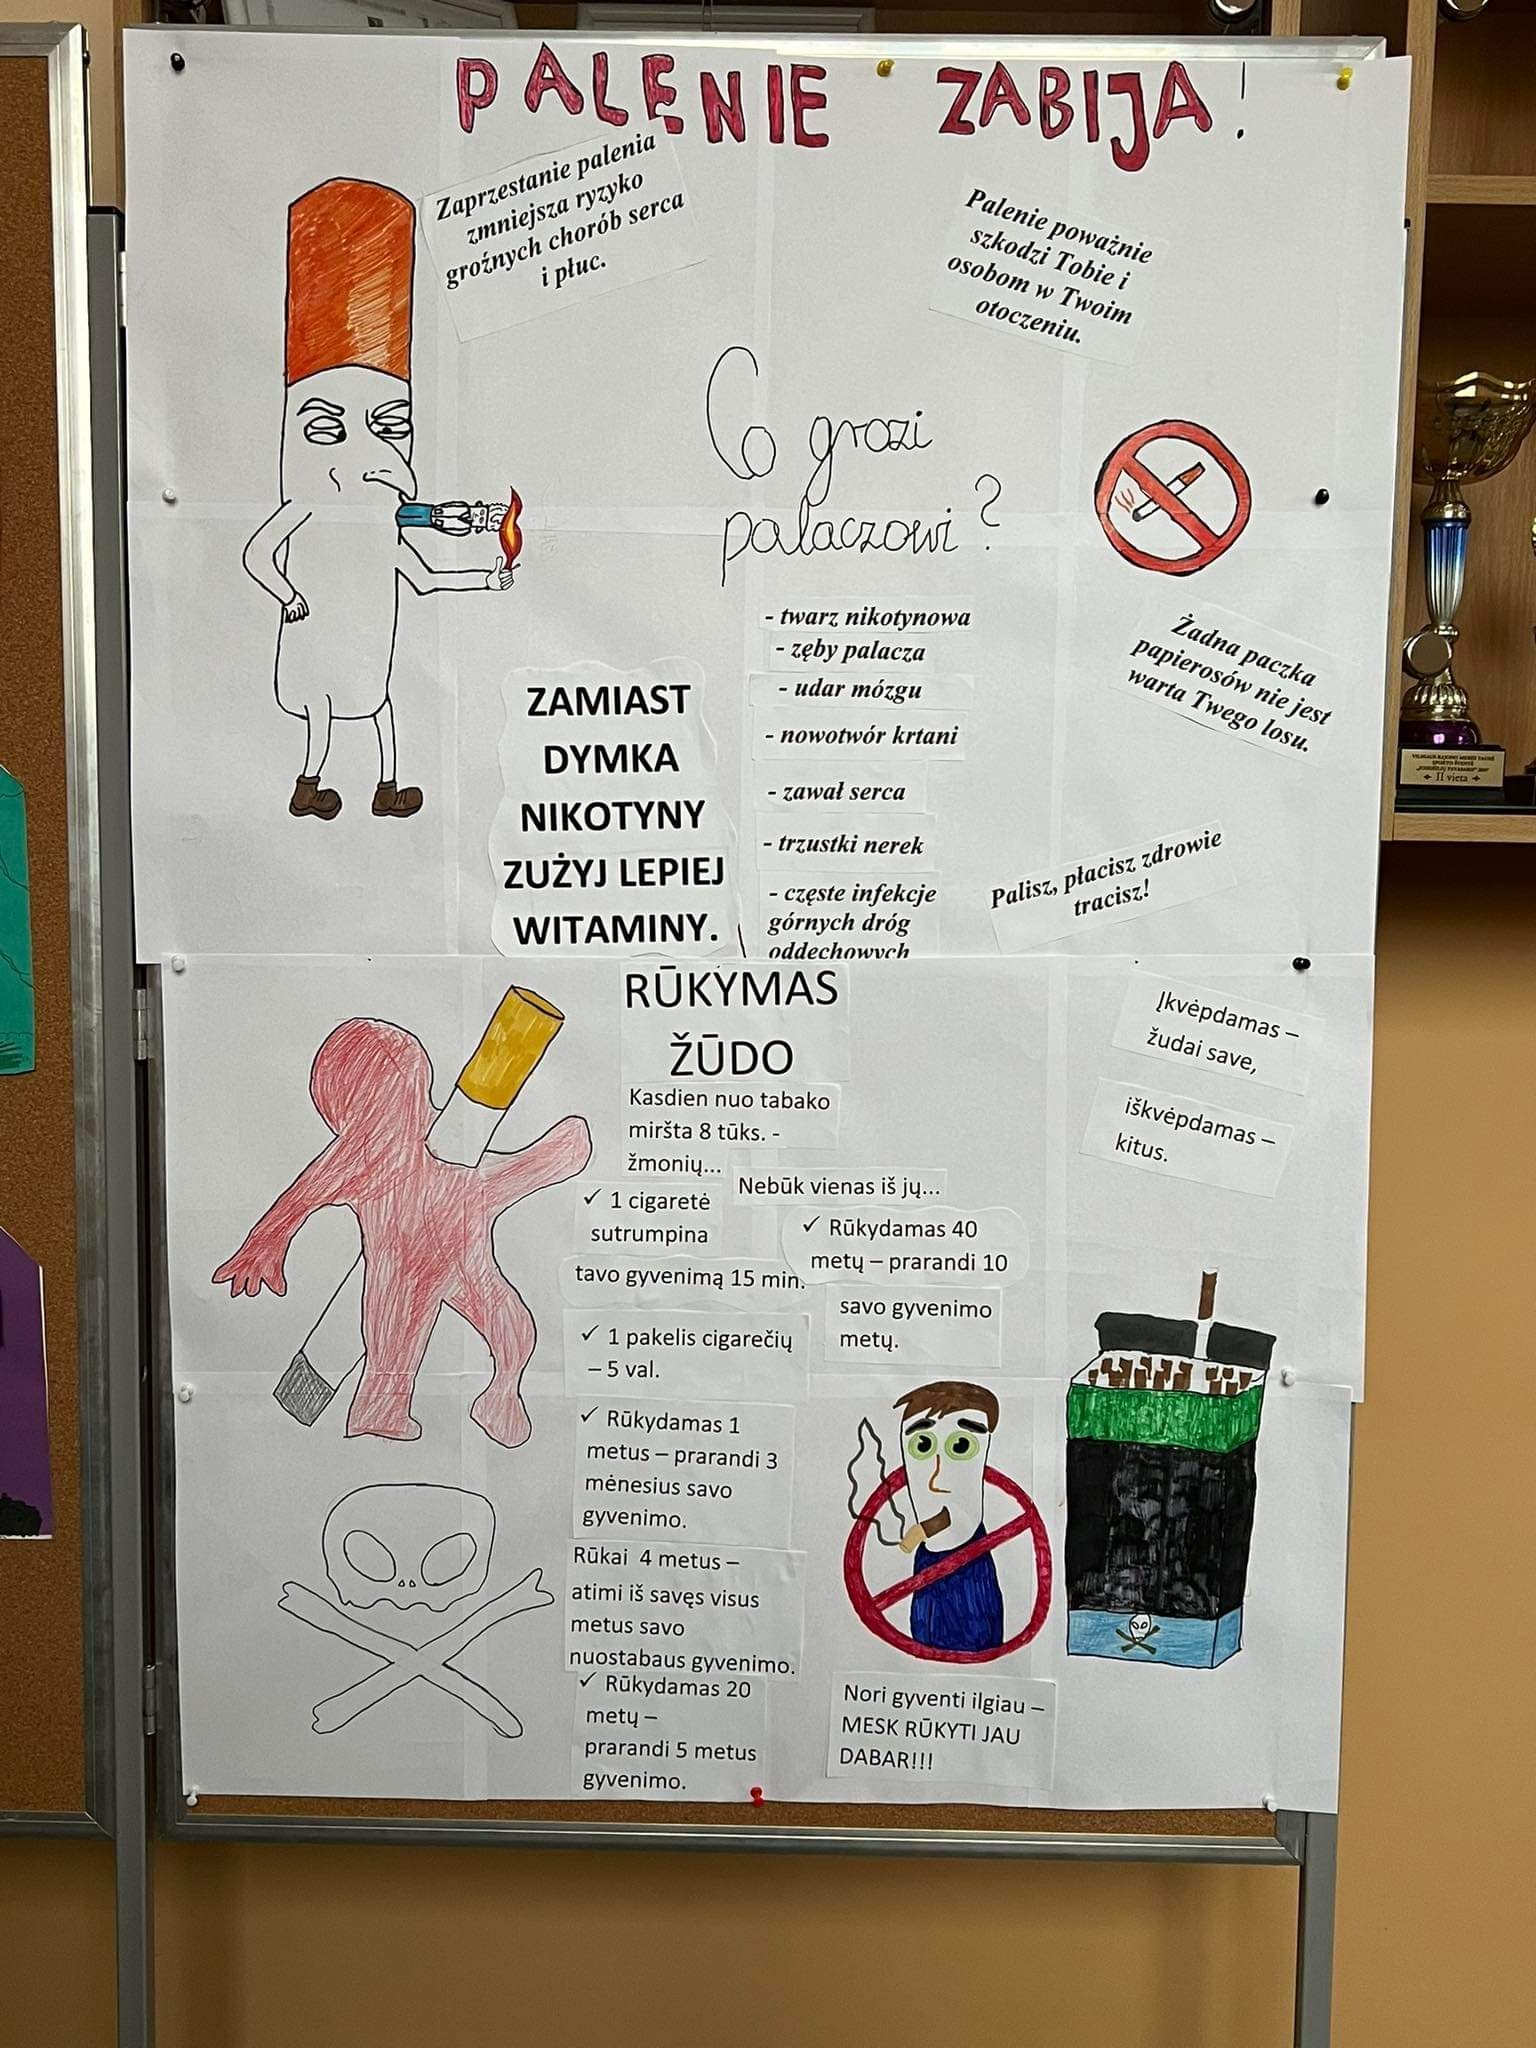 PALENIE ZABIJA!
Zaprzestanie palenia
zmniejsza ryzyko
groźnych chorób serca
i płuc.
Palenie poważnie
szkodzi Tobie i
osobom w Twoim
otoczeniu.
Co grozi
palaczowi?
- twarz nikotynowa
- zęby palacza
- udar mózgu
- nowotwór krtani
- zawał serca
- trzustki nerek
- częste infekcje
górnych dróg
oddechowych
Żadna paczka
papierosów nie jest
warta Twego losu.
ZAMIAST
DYMKA
NIKOTYNY
ZUŻYJ LEPIEJ
WITAMINY.
Palisz, płacisz zdrowie
tracisz!
RŪKYMAS
ŽŪDO
Kasdien nuo tabako
miršta 8 tūks. -
žmonių...
Nebūk vienas iš jų...
Įkvėpdamas –
žudai save,
iškvėpdamas –
kitus.
✓ 1 cigaretė
sutrumpina
tavo gyvenimą 15 min.
✓ 1 pakelis cigarečių
– 5 val.
✓ Rūkydamas 1
metus – prarandi 3
mėnesius savo
gyvenimo.
Rūkai 4 metus –
atimi iš savęs visus
metus savo
nuostabaus gyvenimo.
✓ Rūkydamas 20
metų –
prarandi 5 metus
gyvenimo.
✓ Rūkydamas 40
metų – prarandi 10
savo gyvenimo
metų.
Nori gyventi ilgiau –
MESK RŪKYTI JAU
DABAR!!!
II vieta